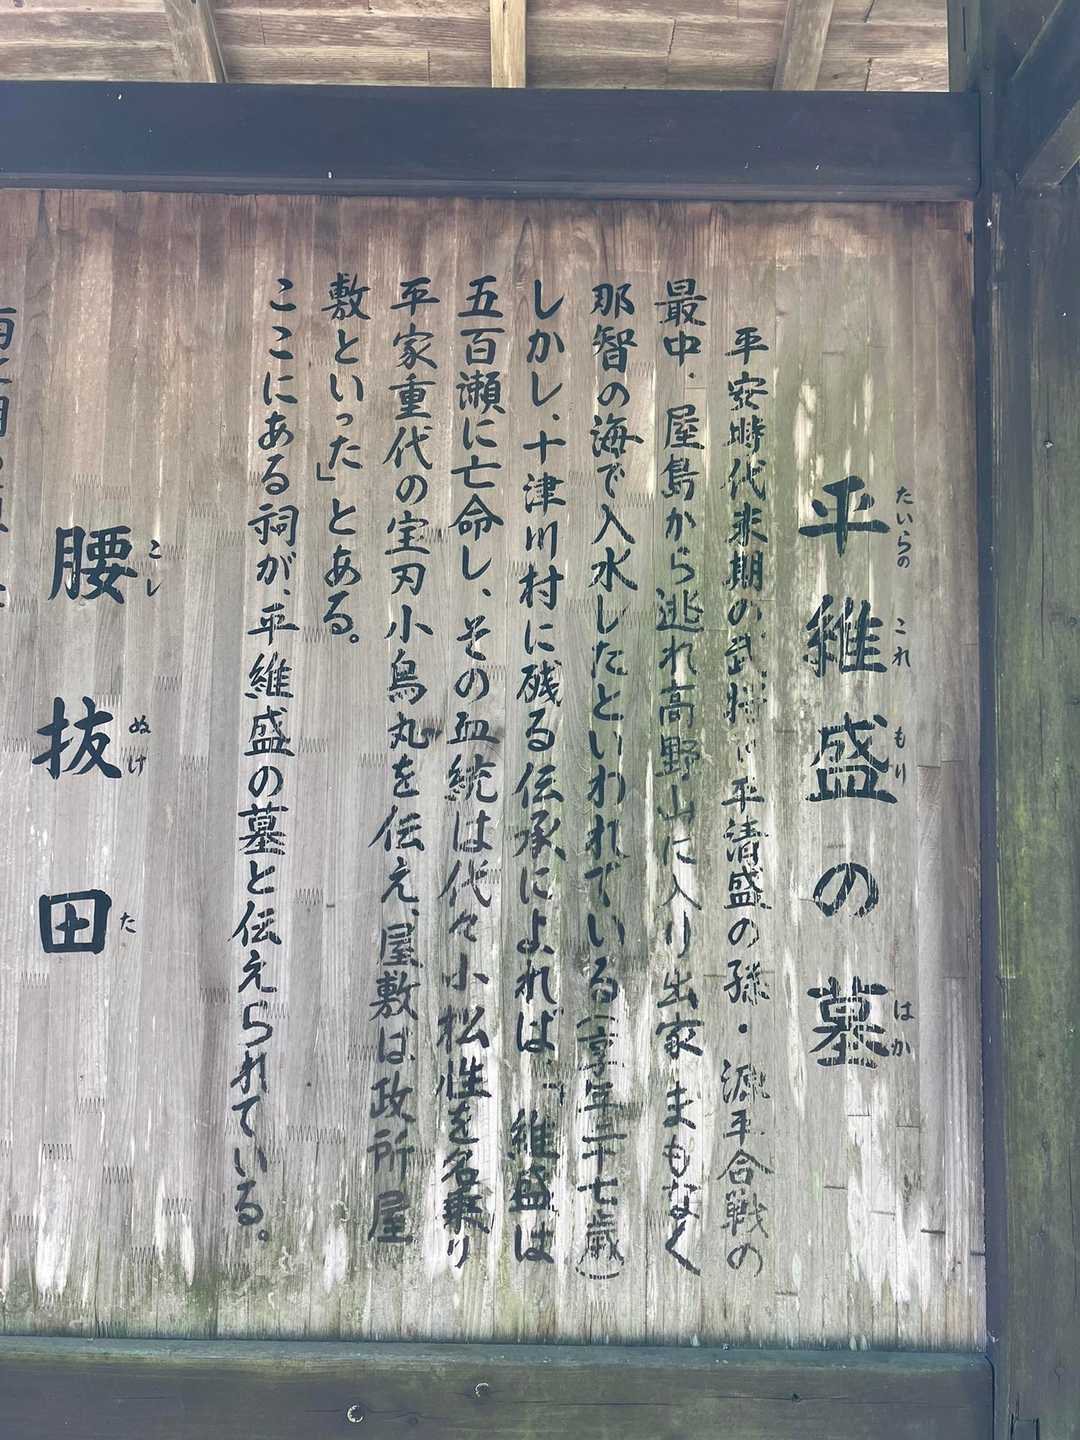 平維盛の墓
たいらの これ もり はか
平安時代末期の武将で平清盛の孫・源平合戦の
最中、屋島から逃れ高野山に入り出家まもなく
那智の海で入水したといわれている(享年二十七歳)
しかし、十津川村に残る伝承によれば、「維盛は
五百瀬に亡命し、その血統は代々小松性を名乗り
平家重代の宝刃小烏丸を伝え、屋敷は政所屋
敷といった」とある。
ここにある祠が、平維盛の墓と伝えられている。
腰抜田
こし ぬけ た